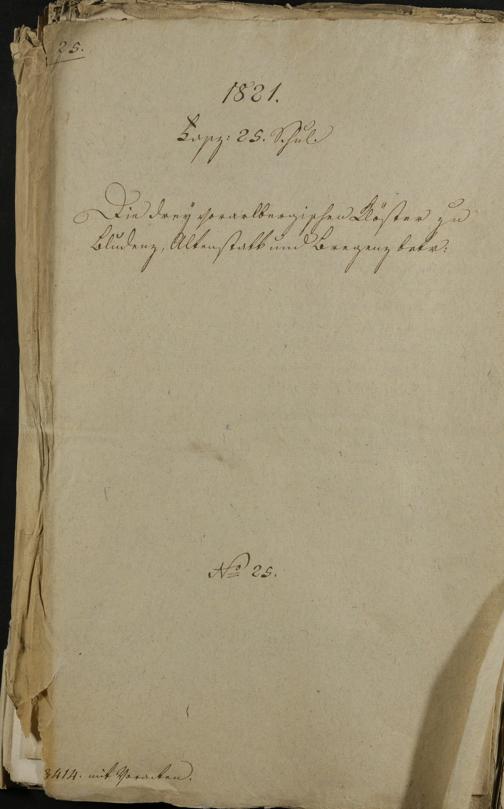 25.
1821.
Fasz: 25. Schul.
Die drey vorarlbergischen Klöster zu
Bludenz, Altenstatt und Bregenz betr:
No 25.
8414. mit Vorakten.